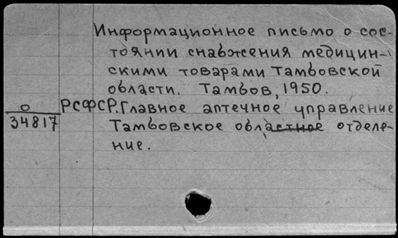 Информационное письмо о сос-
тоянии снабжения медицин-
скими товарами Тамбовской
области. Тамбов, 1950.
О РСФСР. Главное аптечное управление
34817 Тамбовское областное отделе-
ние.